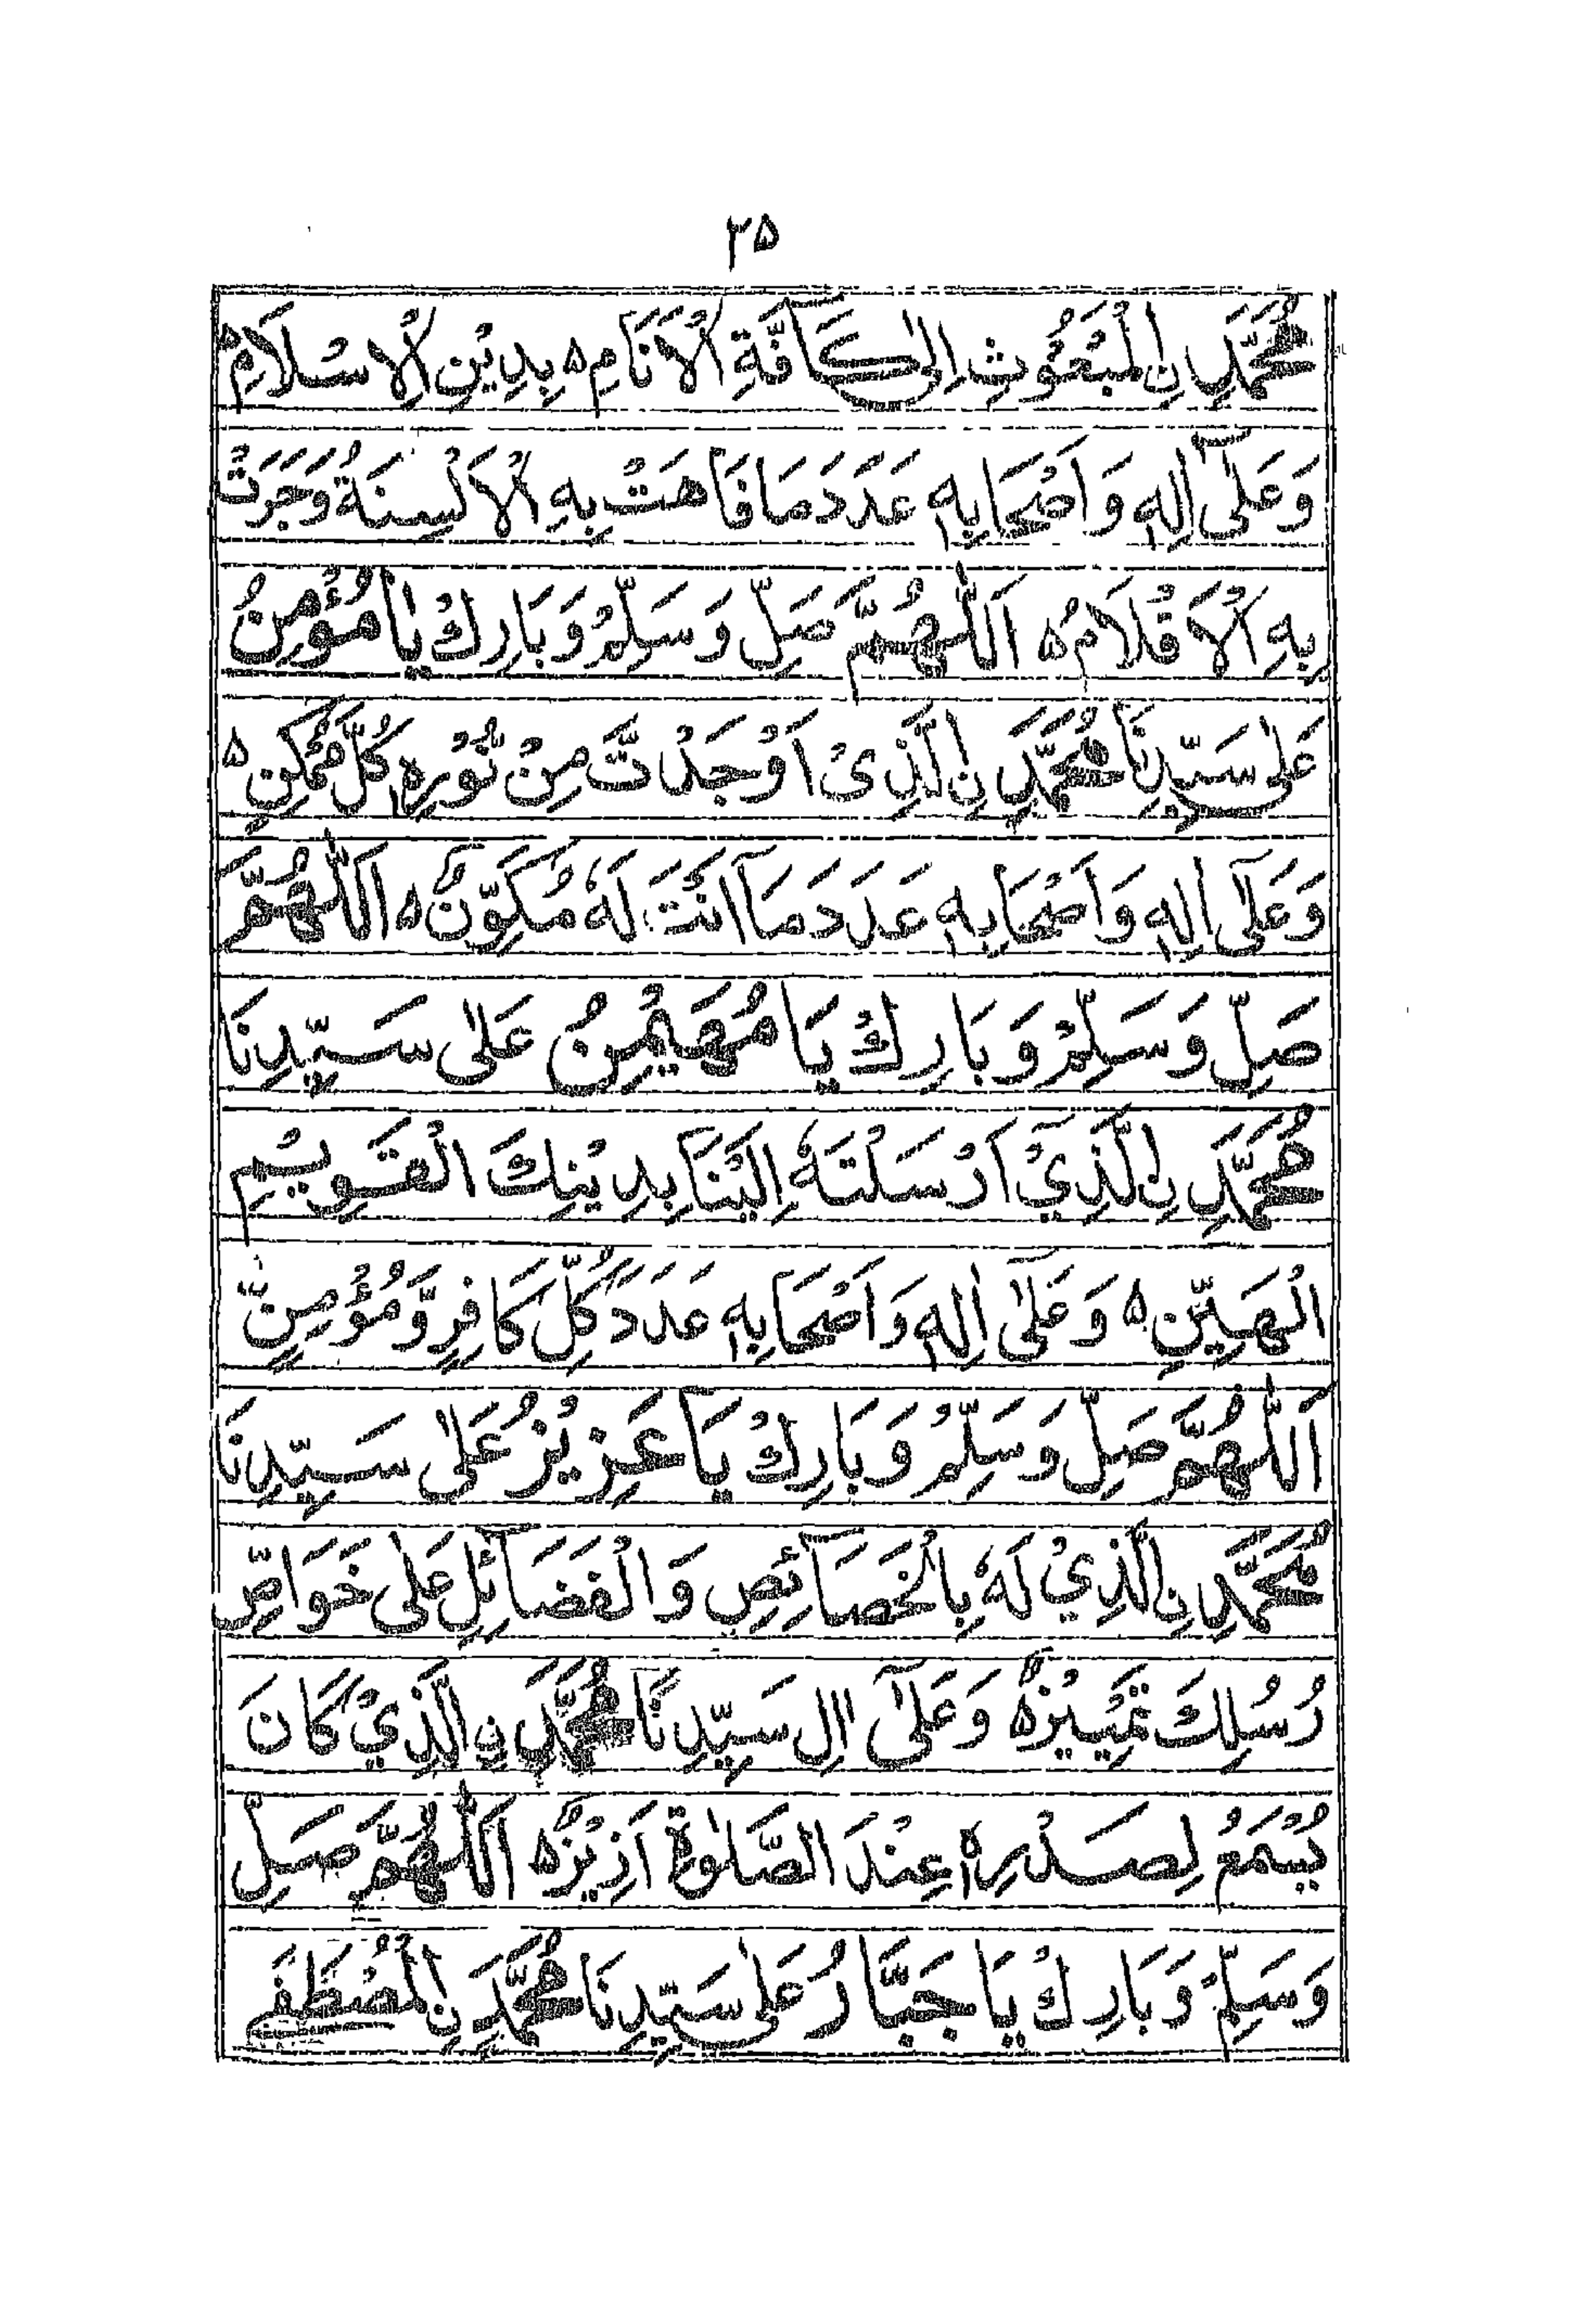 ۲۵
مُحَمَّدِ نِ الْمَبْعُوْثِ اِلٰى كَآفَّةِ الْاَنَامِ ۵ بِدِيْنِ الْاِسْلَامِ ۵
وَعَلٰٓى اٰلِهٖ وَاَصْحَابِهٖ عَدَدَ مَا فَاهَتْ بِهِ الْاَلْسِنَةُ وَجَرَتْ
بِهِ الْاَقْلَامُ ۵ اَللّٰهُمَّ صَلِّ وَسَلِّمْ وَبَارِكْ يَا مُؤْمِنُ
عَلٰى سَيِّدِنَا مُحَمَّدِ نِ الَّذِىْ اَوْجَدْتَّ مِنْ نُّوْرِهٖ كُلَّ مُمْكِنٍ ۵
وَعَلٰٓى اٰلِهٖ وَاَصْحَابِهٖ عَدَدَ مَآ اَنْتَ لَهٗ مُكَوِّنٌ ۵ اَللّٰهُمَّ
صَلِّ وَسَلِّمْ وَبَارِكْ يَا مُهَيْمِنُ عَلٰى سَيِّدِنَا
مُحَمَّدِ نِ الَّذِيْٓ اَرْسَلْتَهٗ اِلَيْنَا بِدِيْنِكَ الْقَوِيْمِ
الْهَيِّنِ ۵ وَعَلٰٓى اٰلِهٖ وَاَصْحَابِهٖ عَدَدَ كُلِّ كَافِرٍ وَّمُؤْمِنٍ
اَللّٰهُمَّ صَلِّ وَسَلِّمْ وَبَارِكْ يَا عَزِيْزُ عَلٰى سَيِّدِنَا
مُحَمَّدِ نِ الَّذِيْ لَهٗ بِالْخَصَآئِصِ وَالْفَضَآئِلِ عَلٰى خَوَاصِّ
رُسُلِكَ تَمْيِيْزٌ ۵ وَعَلٰٓى اٰلِ سَيِّدِنَا مُحَمَّدِ نِ الَّذِيْ كَانَ
يُسْمَعُ لِصَدْرِهٖ عِنْدَ الصَّلٰوةِ اَزِيْزٌ ۵ اَللّٰهُمَّ صَلِّ
وَسَلِّمْ وَبَارِكْ يَا جَبَّارُ عَلٰى سَيِّدِنَا مُحَمَّدِ نِ الْمُصْطَفٰى